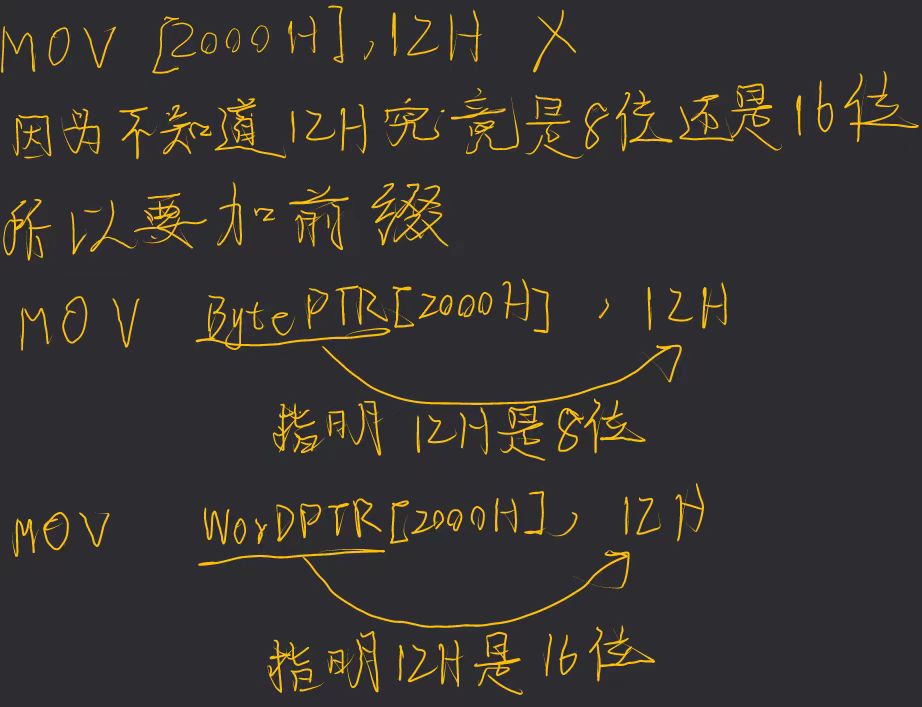 MOV [2000H],12H X
因为不知道12H究竟是8位还是16位
所以要加前缀
MOV BytePTR[2000H] , 12H
指明 12H是8位
MOV WorDPTR[2000H], 12H
指明12H是16位